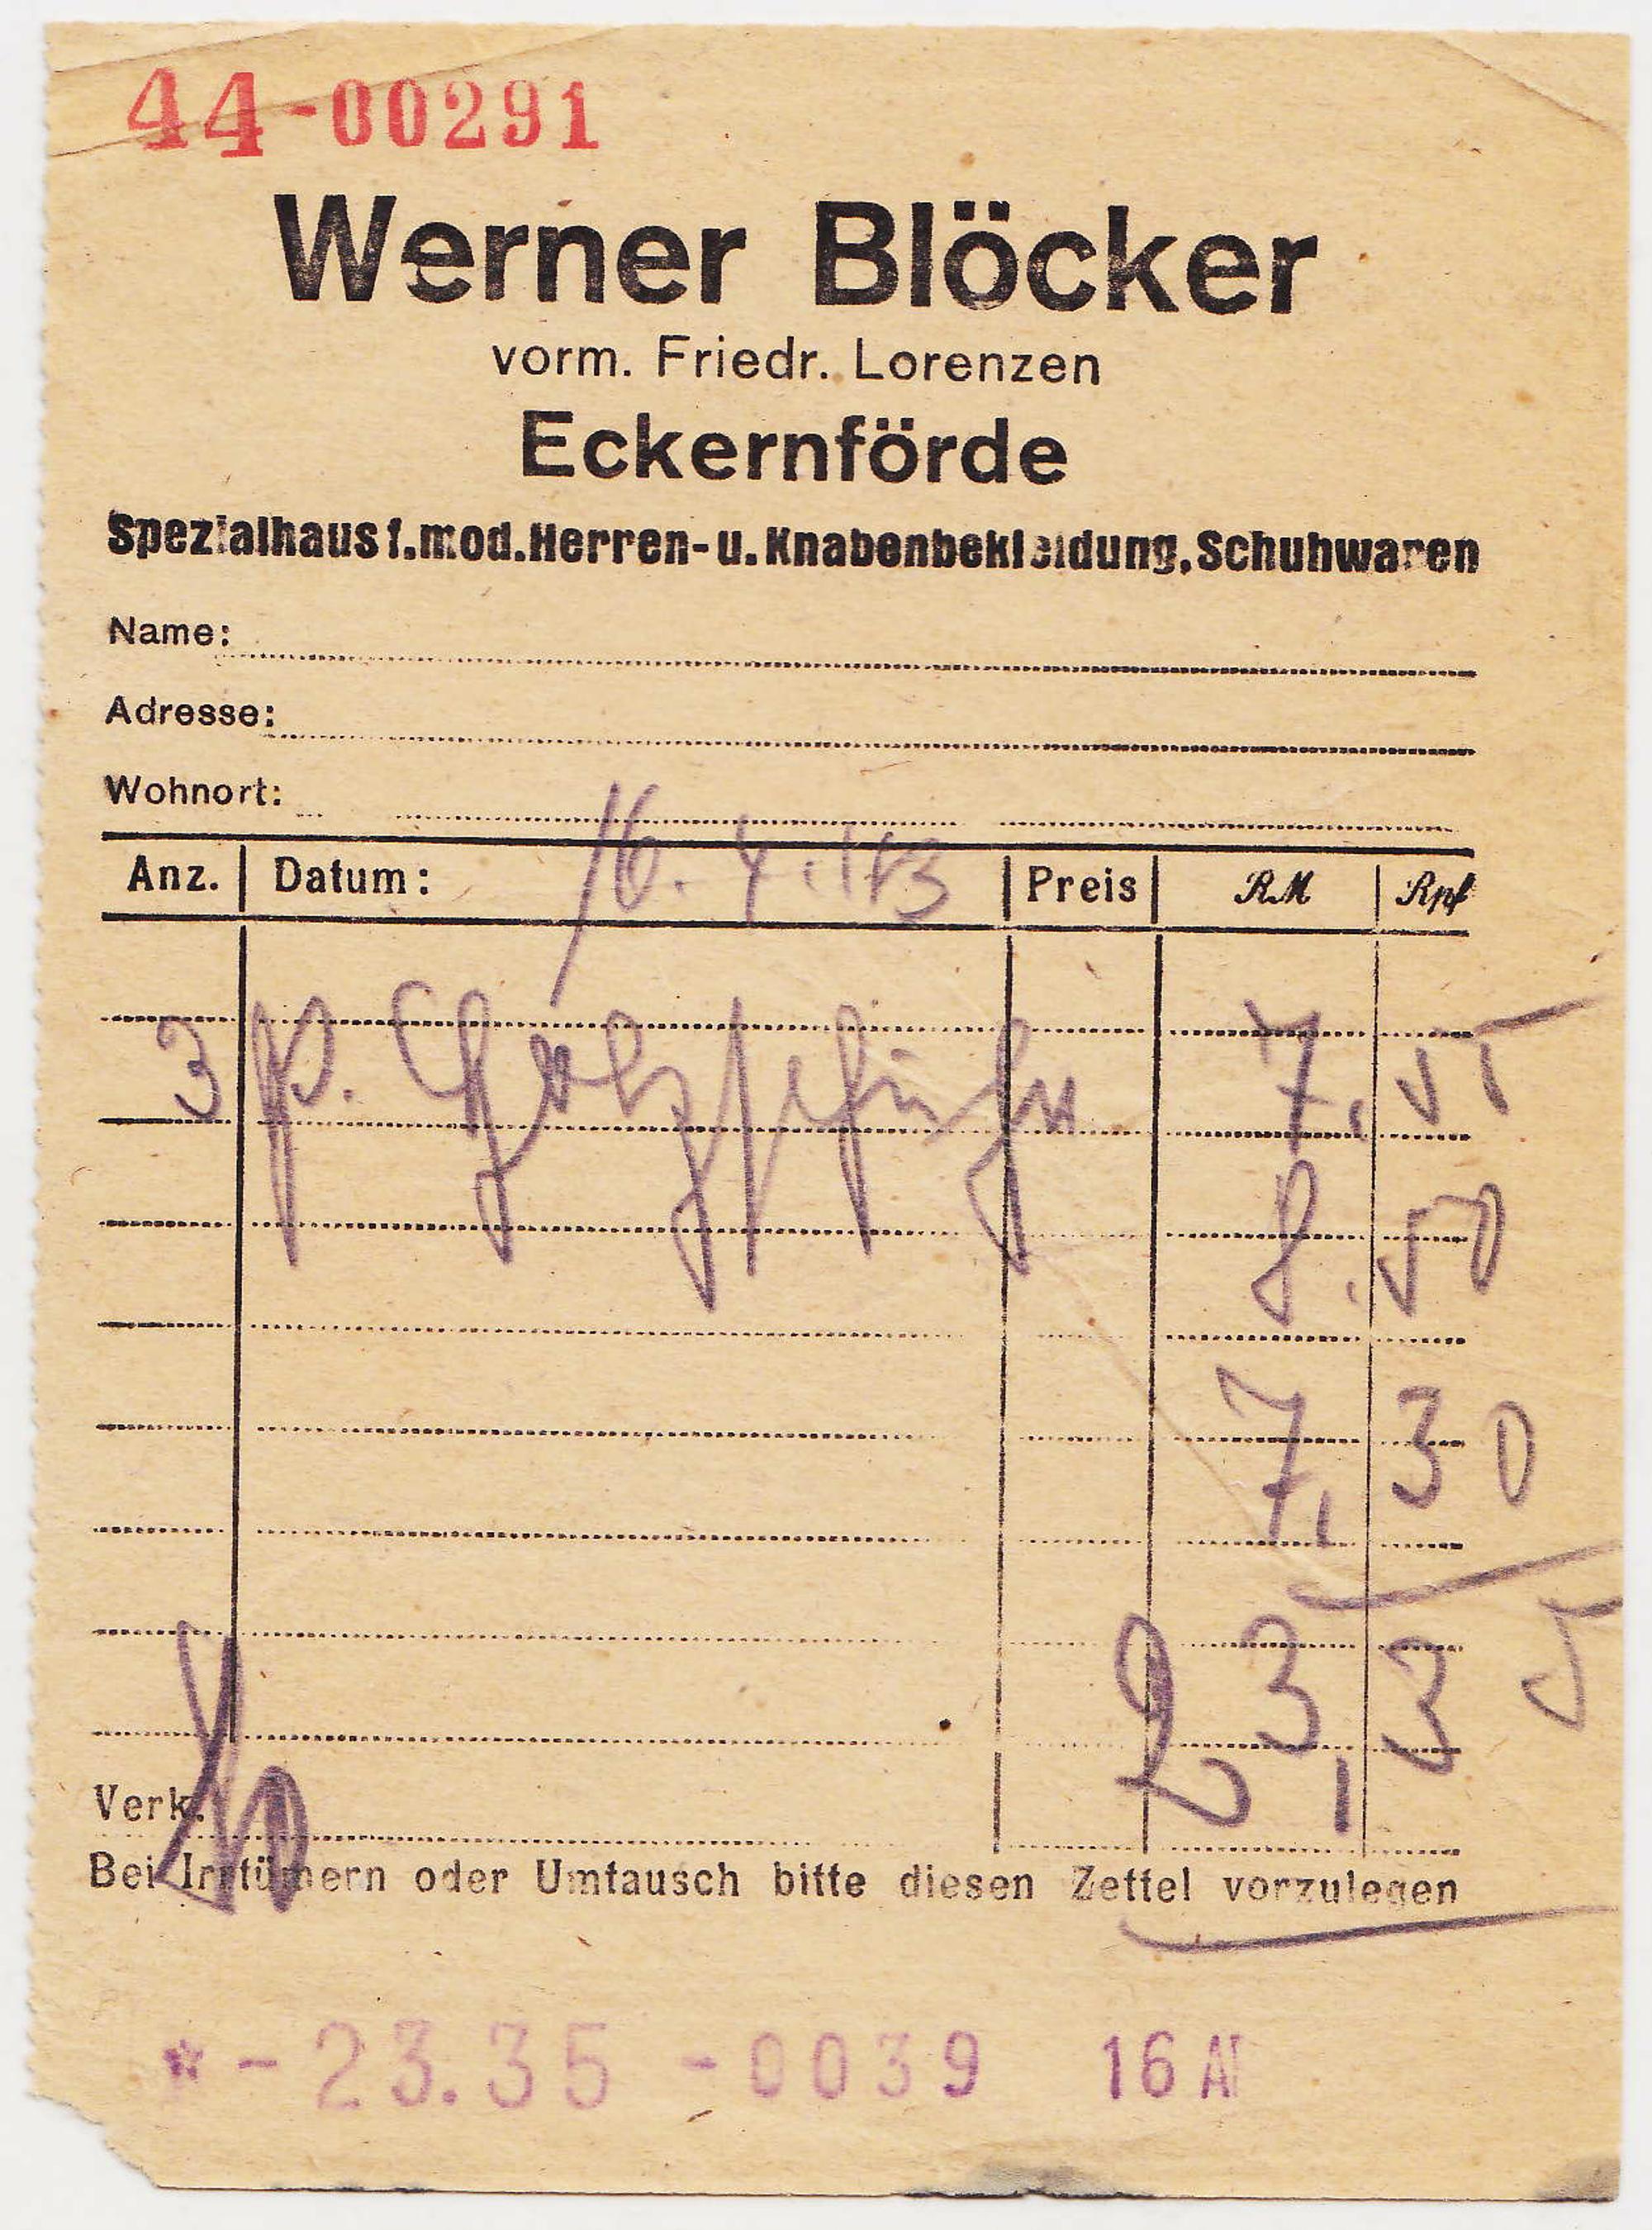 44-00291
Werner Blöcker
vorm. Friedr. Lorenzen
Eckernförde
Spezialhaus f. mod. Herren- u. Knabenbekleidung, Schuhwaren
Name:
Adresse:
Wohnort:
Anz. Datum: 16. 4. 43 Preis RM Rpf
3 P. Holzschuhe 7,55
8,50
7,30
23,35
Verk.
Bei Irrtümern oder Umtausch bitte diesen Zettel vorzulegen
*-23.35 -0039 16 A